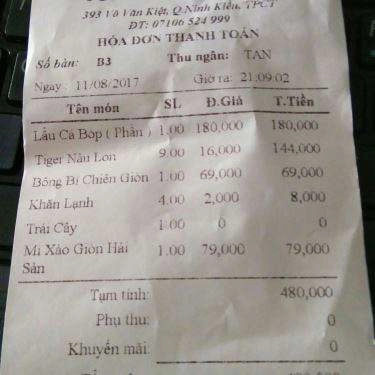 393 Võ Văn Kiệt, Q.Ninh Kiều, TPCT
ĐT: 07106 524 999
HÓA ĐƠN THANH TOÁN
Số bàn: B3 Thu ngân: TAN
Ngày : 11/08/2017 Giờ ra: 21:09:02
Tên món SL Đ.Giá T.Tiền
Lẩu Cá Bóp ( Phần ) 1.00 180,000 180,000
Tiger Nâu Lon 9.00 16,000 144,000
Bông Bí Chiên Giòn 1.00 69,000 69,000
Khăn Lạnh 4.00 2,000 8,000
Trái Cây 1.00 0 0
Mì Xào Giòn Hải 1.00 79,000 79,000
Sản
Tạm tính: 480,000
Phụ thu: 0
Khuyến mãi: 0